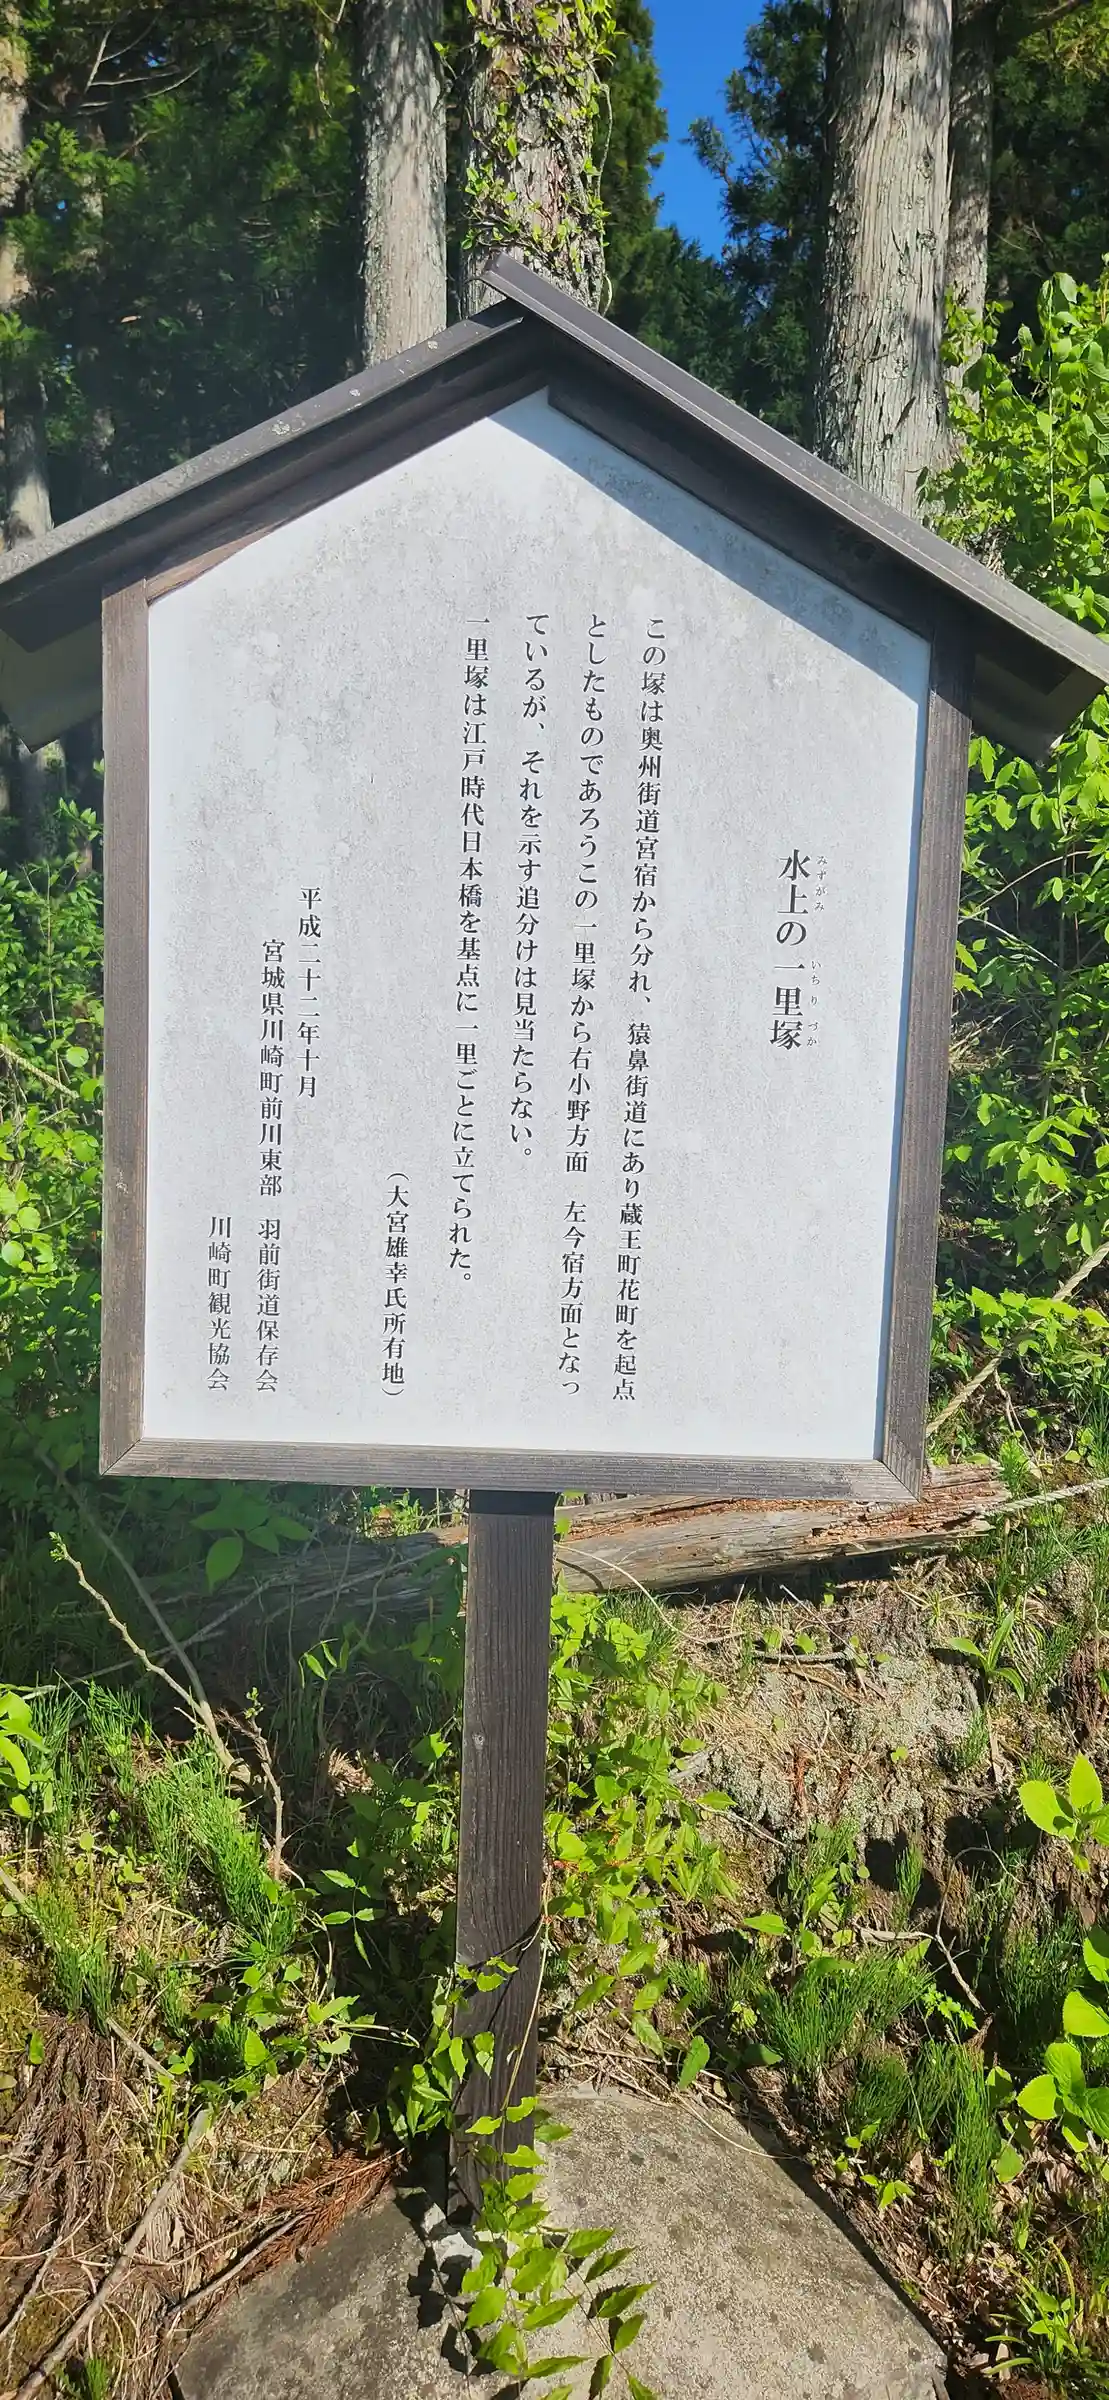 水上の一里塚
みずがみ いちりづか
この塚は奥州街道宮宿から分れ、猿鼻街道にあり蔵王町花町を起点
としたものであろうこの一里塚から右小野方面　左今宿方面となっ
ているが、それを示す追分けは見当たらない。
一里塚は江戸時代日本橋を基点に一里ごとに立てられた。
（大宮雄幸氏所有地）
平成二十二年十月
宮城県川崎町前川東部　羽前街道保存会
川崎町観光協会